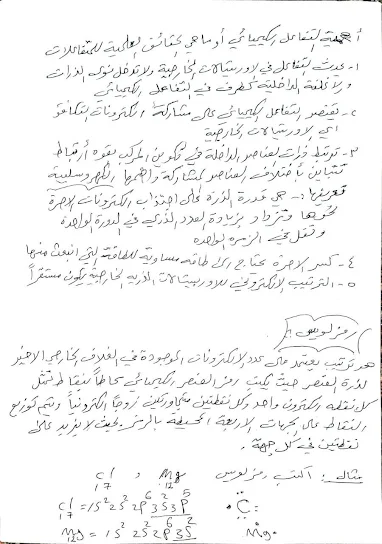 أهمية التفاعل الكيميائي أو ما هي الحقائق العلمية للمتفاعلات
١- يحدث التفاعل في الاوربيتالات الخارجية ولا تدخل نوى الذرات
ولا الأغلفة الداخلية كطرف في التفاعل الكيميائي
٢- يقتصر التفاعل الكيميائي على مشاركة الكترونات التكافؤ
اي الاوربيتالات الخارجية
٣- ترتبط ذرات العناصر الداخلة في تكوين المركب بقوه أرتباط
تتباين بأختلاف العناصر المشاركة واهمها الكهروسلبية
تعريفها :- هي قدرة الذرة على اجتذاب الكترونات الاصرة
نحوها وتزداد بزيادة العدد الذري في الدورة الواحدة
وتقل في الزمره الواحده
٤- كسر الاصرة يحتاج الى طاقه مساوية للطاقة التي انبعثت منها
٥- الترتيب الالكتروني للاوربيتالات الذريه الخارجية يكون مستقراً
رمز لويس :-
هو ترتيب يعتمد على عدد الالكترونات الموجودة في الغلاف الخارجي الاخير
لذرة العنصر حيث يكتب رمز العنصر الكيميائي محاطاً بنقاط تمثل
كل نقطه الكترون واحد وكل نقطتين متجاورتين زوجاً الكترونياً ويتم توزيع
النقاط على الجهات الاربعة المحيطه بالرمز بحيث لا يزيد على
نقطتين في كل جهة.
مثال : اكتب رمز لويس
17Cl , 12Mg
17Cl = 1S² 2S² 2P⁶ 3S² 3P⁵
12Mg = 1S² 2S² 2P⁶ 3S² Mg